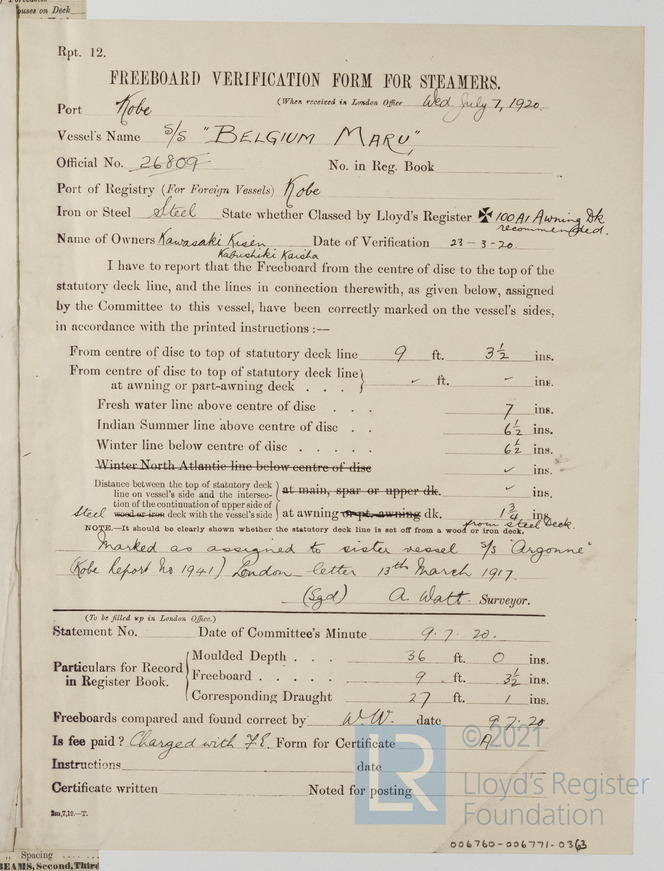 ouses on Deck
Rpt. 12.
FREEBOARD VERIFICATION FORM FOR STEAMERS.
(When received in London Office Wed. July 7, 1920.
Port Kobe
Vessel's Name S/S "BELGIUM MARU"
Official No. 26809 No. in Reg. Book
Port of Registry (For Foreign Vessels) Kobe
Iron or Steel Steel State whether Classed by Lloyd's Register ✠ 100A1 Awning Dk
recommended.
Name of Owners Kawasaki Kisen Date of Verification 23-3-20.
Kabushiki Kaisha
I have to report that the Freeboard from the centre of disc to the top of the
statutory deck line, and the lines in connection therewith, as given below, assigned
by the Committee to this vessel, have been correctly marked on the vessel's sides,
in accordance with the printed instructions :—
From centre of disc to top of statutory deck line 9 ft. 3½ ins.
From centre of disc to top of statutory deck line
at awning or part-awning deck . . . ✓ ft. ✓ ins.
Fresh water line above centre of disc . . . 7 ins.
Indian Summer line above centre of disc . . 6½ ins.
Winter line below centre of disc . . . . . 6½ ins.
Winter North Atlantic line below centre of disc ✓ ins.
Distance between the top of statutory deck
line on vessel's side and the intersec- at main, spar or upper dk. ✓ ins.
tion of the continuation of upper side of
steel wood or iron deck with the vessel's side at awning or pt. awning dk. 1¾ ins.
from steel Deck.
NOTE.—It should be clearly shown whether the statutory deck line is set off from a wood or iron deck.
Marked as assigned to sister vessel S/S "Argonne"
(Kobe Report No 1941) London letter 13th March 1917.
(Sgd) A. Watt. Surveyor.
(To be filled up in London Office.)
Statement No. Date of Committee's Minute 9.7.20.
Particulars for Record
in Register Book.
Moulded Depth . . . 36 ft. 0 ins.
Freeboard . . . . . 9 ft. 3½ ins.
Corresponding Draught 27 ft. 1 ins.
Freeboards compared and found correct by W.W. date 9.7.20
Is fee paid? Charged with F.E. Form for Certificate A
Instructions date
Certificate written Noted for posting
2m,7,19.—T.
© 2021
LR
Lloyd's Register
Foundation
006760-006771-0363
,, Spacing .... ..
BEAMS, Second, Third